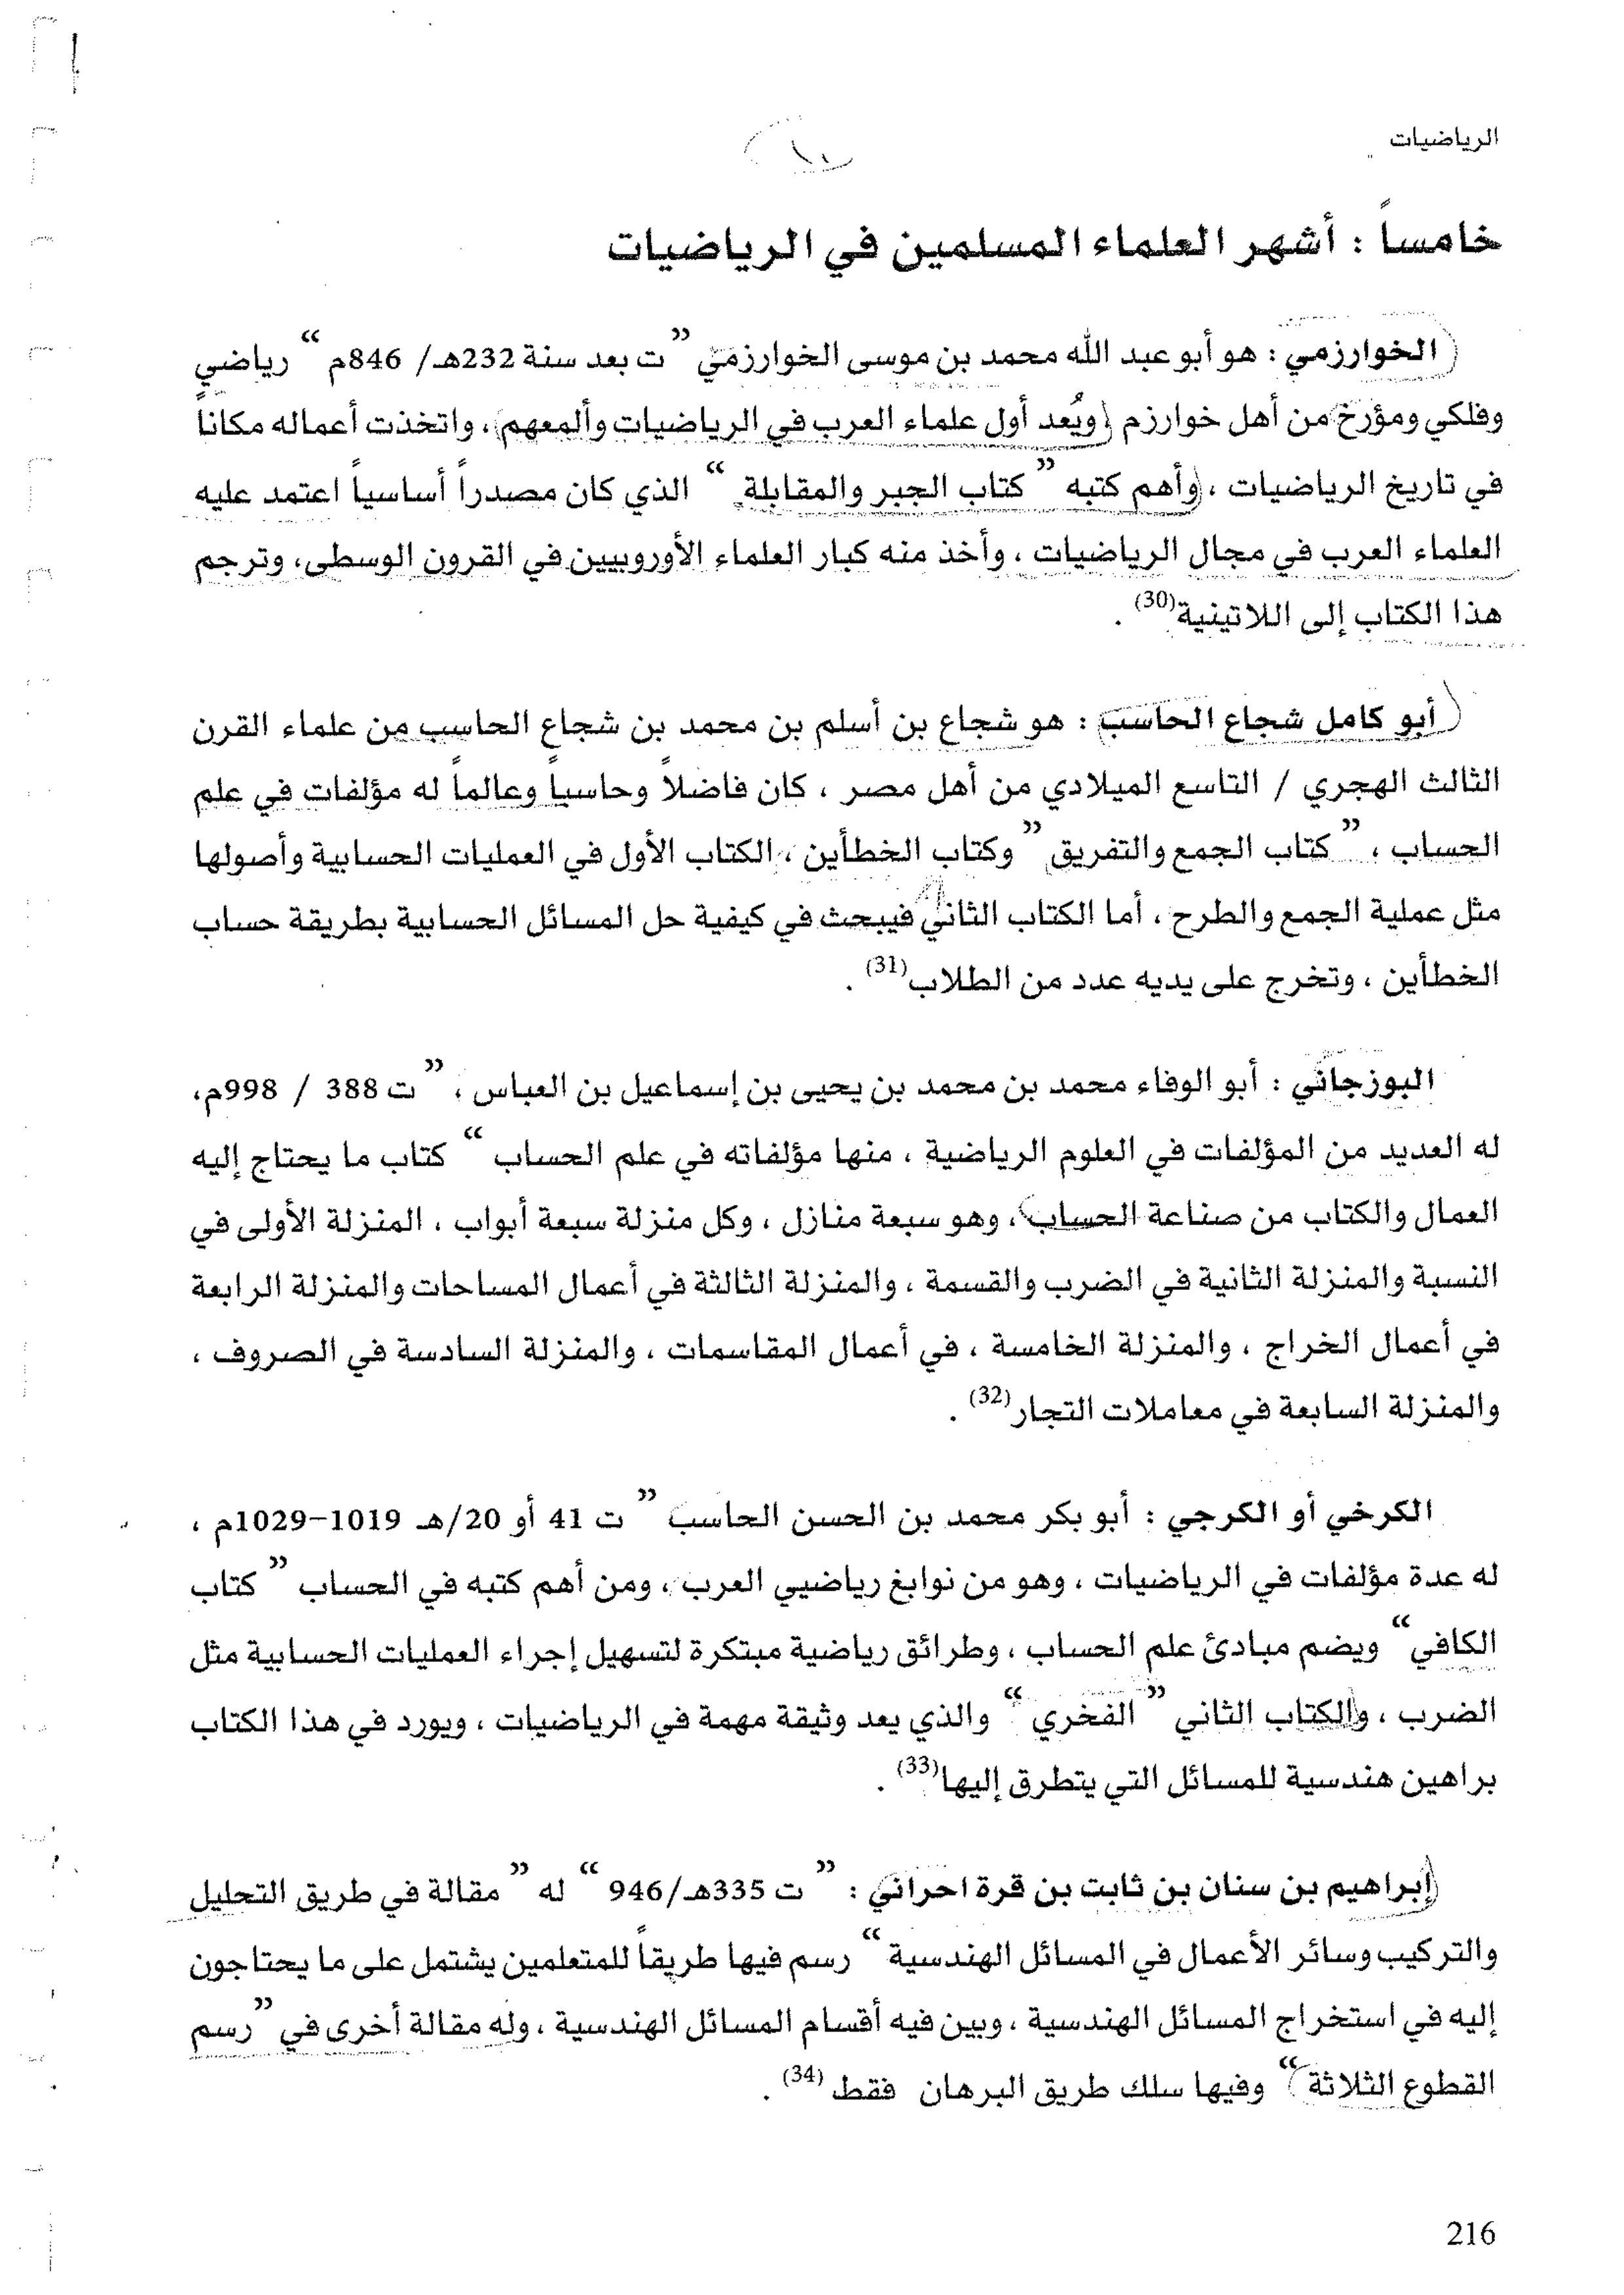 الرياضيات
خامساً : أشهر العلماء المسلمين في الرياضيات
الخوارزمي : هو أبو عبد الله محمد بن موسى الخوارزمي ” ت بعد سنة 232هـ/ 846م “ رياضي
وفلكي ومؤرخ من أهل خوارزم (ويُعد أول علماء العرب في الرياضيات وألمعهم)، واتخذت أعماله مكاناً
في تاريخ الرياضيات ، (وأهم كتبه ” كتاب الجبر والمقابلة “ الذي كان مصدراً أساسياً اعتمد عليه
العلماء العرب في مجال الرياضيات ، وأخذ منه كبار العلماء الأوروبيين في القرون الوسطى، وترجم
هذا الكتاب إلى اللاتينية(30) .
(أبو كامل شجاع الحاسب) : هو شجاع بن أسلم بن محمد بن شجاع الحاسب من علماء القرن
الثالث الهجري / التاسع الميلادي من أهل مصر ، كان فاضلاً وحاسباً وعالماً له مؤلفات في علم
الحساب ، ” كتاب الجمع والتفريق ” وكتاب الخطأين ، الكتاب الأول في العمليات الحسابية وأصولها
مثل عملية الجمع والطرح ، أما الكتاب الثاني فيبحث في كيفية حل المسائل الحسابية بطريقة حساب
الخطأين ، وتخرج على يديه عدد من الطلاب(31) .
البوزجاني : أبو الوفاء محمد بن محمد بن يحيى بن إسماعيل بن العباس ، ” ت 388 / 998م،
له العديد من المؤلفات في العلوم الرياضية ، منها مؤلفاته في علم الحساب “ كتاب ما يحتاج إليه
العمال والكتاب من صناعة الحساب)، وهو سبعة منازل ، وكل منزلة سبعة أبواب ، المنزلة الأولى في
النسبة والمنزلة الثانية في الضرب والقسمة ، والمنزلة الثالثة في أعمال المساحات والمنزلة الرابعة
في أعمال الخراج ، والمنزلة الخامسة ، في أعمال المقاسمات ، والمنزلة السادسة في الصروف ،
والمنزلة السابعة في معاملات التجار(32) .
الكرخي أو الكرجي : أبو بكر محمد بن الحسن الحاسب ” ت 41 أو 20/هـ 1019-1029م ،
له عدة مؤلفات في الرياضيات ، وهو من نوابغ رياضيي العرب ، ومن أهم كتبه في الحساب ” كتاب
الكافي “ ويضم مبادئ علم الحساب ، وطرائق رياضية مبتكرة لتسهيل إجراء العمليات الحسابية مثل
الضرب ، والكتاب الثاني ” الفخري “ والذي يعد وثيقة مهمة في الرياضيات ، ويورد في هذا الكتاب
براهين هندسية للمسائل التي يتطرق إليها(33) .
(إبراهيم بن سنان بن ثابت بن قرة احراني) : ” ت 335هـ/946 “ له ” مقالة في طريق التحليل
والتركيب وسائر الأعمال في المسائل الهندسية “ رسم فيها طريقاً للمتعلمين يشتمل على ما يحتاجون
إليه في استخراج المسائل الهندسية ، وبين فيه أقسام المسائل الهندسية ، وله مقالة أخرى في ” رسم
القطوع الثلاثة “ وفيها سلك طريق البرهان فقط (34) .
216